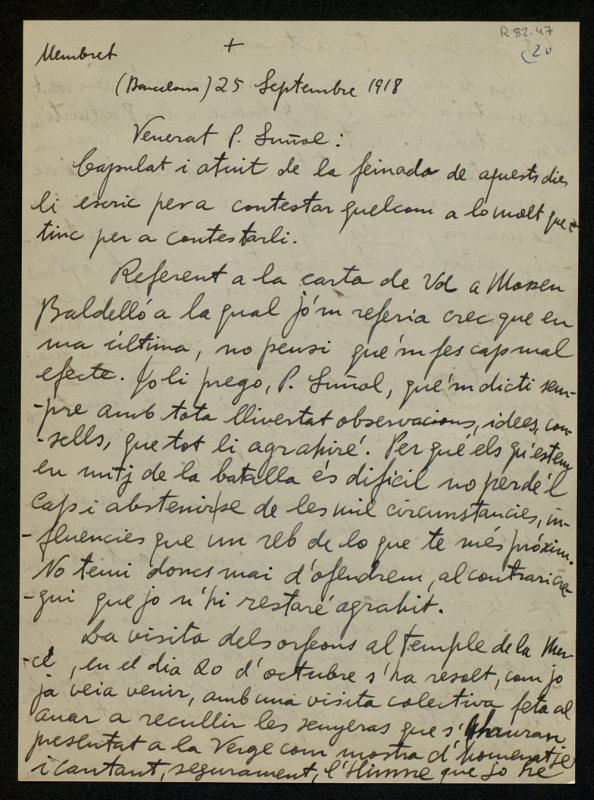 R 82.47
(20
Membret +
(Barcelona) 25 Septembre 1918
Venerat P. Suñol:
Capsulat i atuit de la feinada de aquests dies
li escric per a contestar quelcom a lo molt que
tinc per a contestarli.
Referent a la carta de Vd a Mossen
Baldelló a la qual jo'm referia crec que en
ma última, no pensi que'm fes cap mal
efecte. Jo li prego, P. Suñol, que'm dicti sem-
-pre amb tota llivertat observacions, idees, con-
-sells, que tot li agrahiré. Per què els qu'estem
en mitj de la batalla és difícil no perdre'l
cap i abstenirse de les mil circumstancies, in-
-fluencies que un reb de lo que te més próxim.
No temi doncs mai d'ofendrem, al contrari cre-
-gui que jo n'hi restaré agrahit.
La visita dels orfeons al temple de la Mer-
-cè, en el dia 20 d'octubre s'ha resolt, com jo
ja veia venir, amb una visita colectiva feta al
anar a recullir les senyeras que s'hauran
presentat a la Verge com mostra d'homenatje
i cantant, segurament, l'Himne que jo he